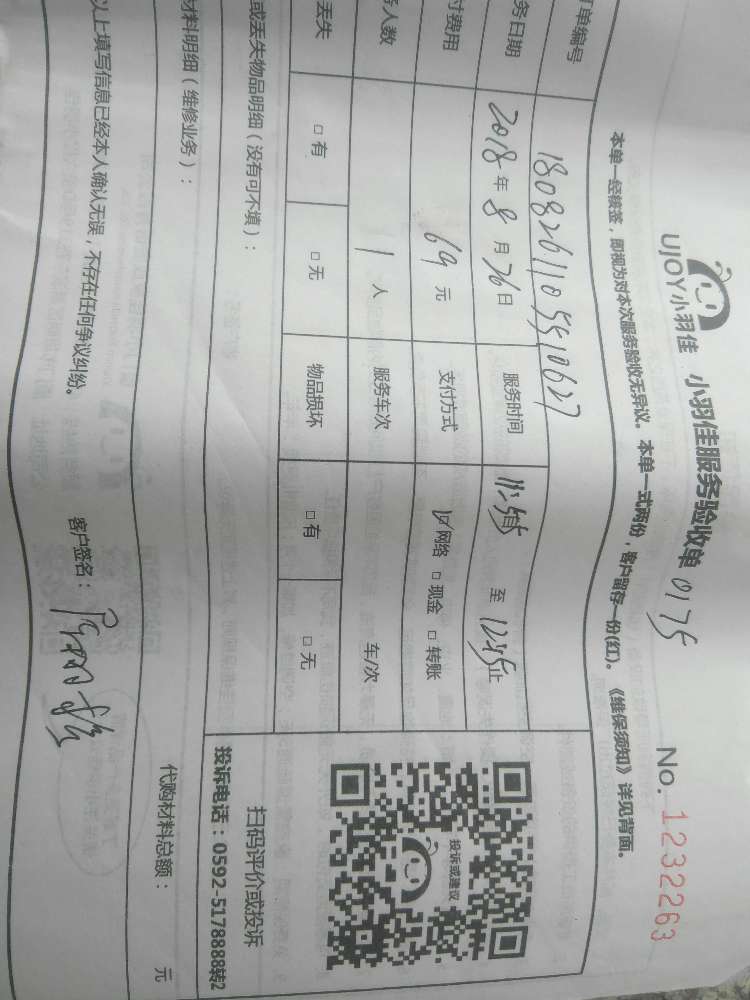 UJOY小羽佳 小羽佳服务验收单 0175 No. 1232263
本单一经核签，即视为对本次服务验收无异议。本单一式两份，客户留存一份(红)。《维保须知》详见背面。
单编号 1808261105510627
务日期 2018年8月26日 服务时间 至 12:45止
付费用 69元 支付方式 网络 □现金 □转账
人数 1人 服务车次 车/次
丢失 □有 □无 物品损坏 □有 □无
或丢失物品明细（没有可不填）：
材料明细（维修业务）：
代购材料总额： 元
以上填写信息已经本人确认无误，不存在任何争议纠纷。
客户签名：
投诉或建议
扫码评价或投诉
投诉电话：0592-5178888转2